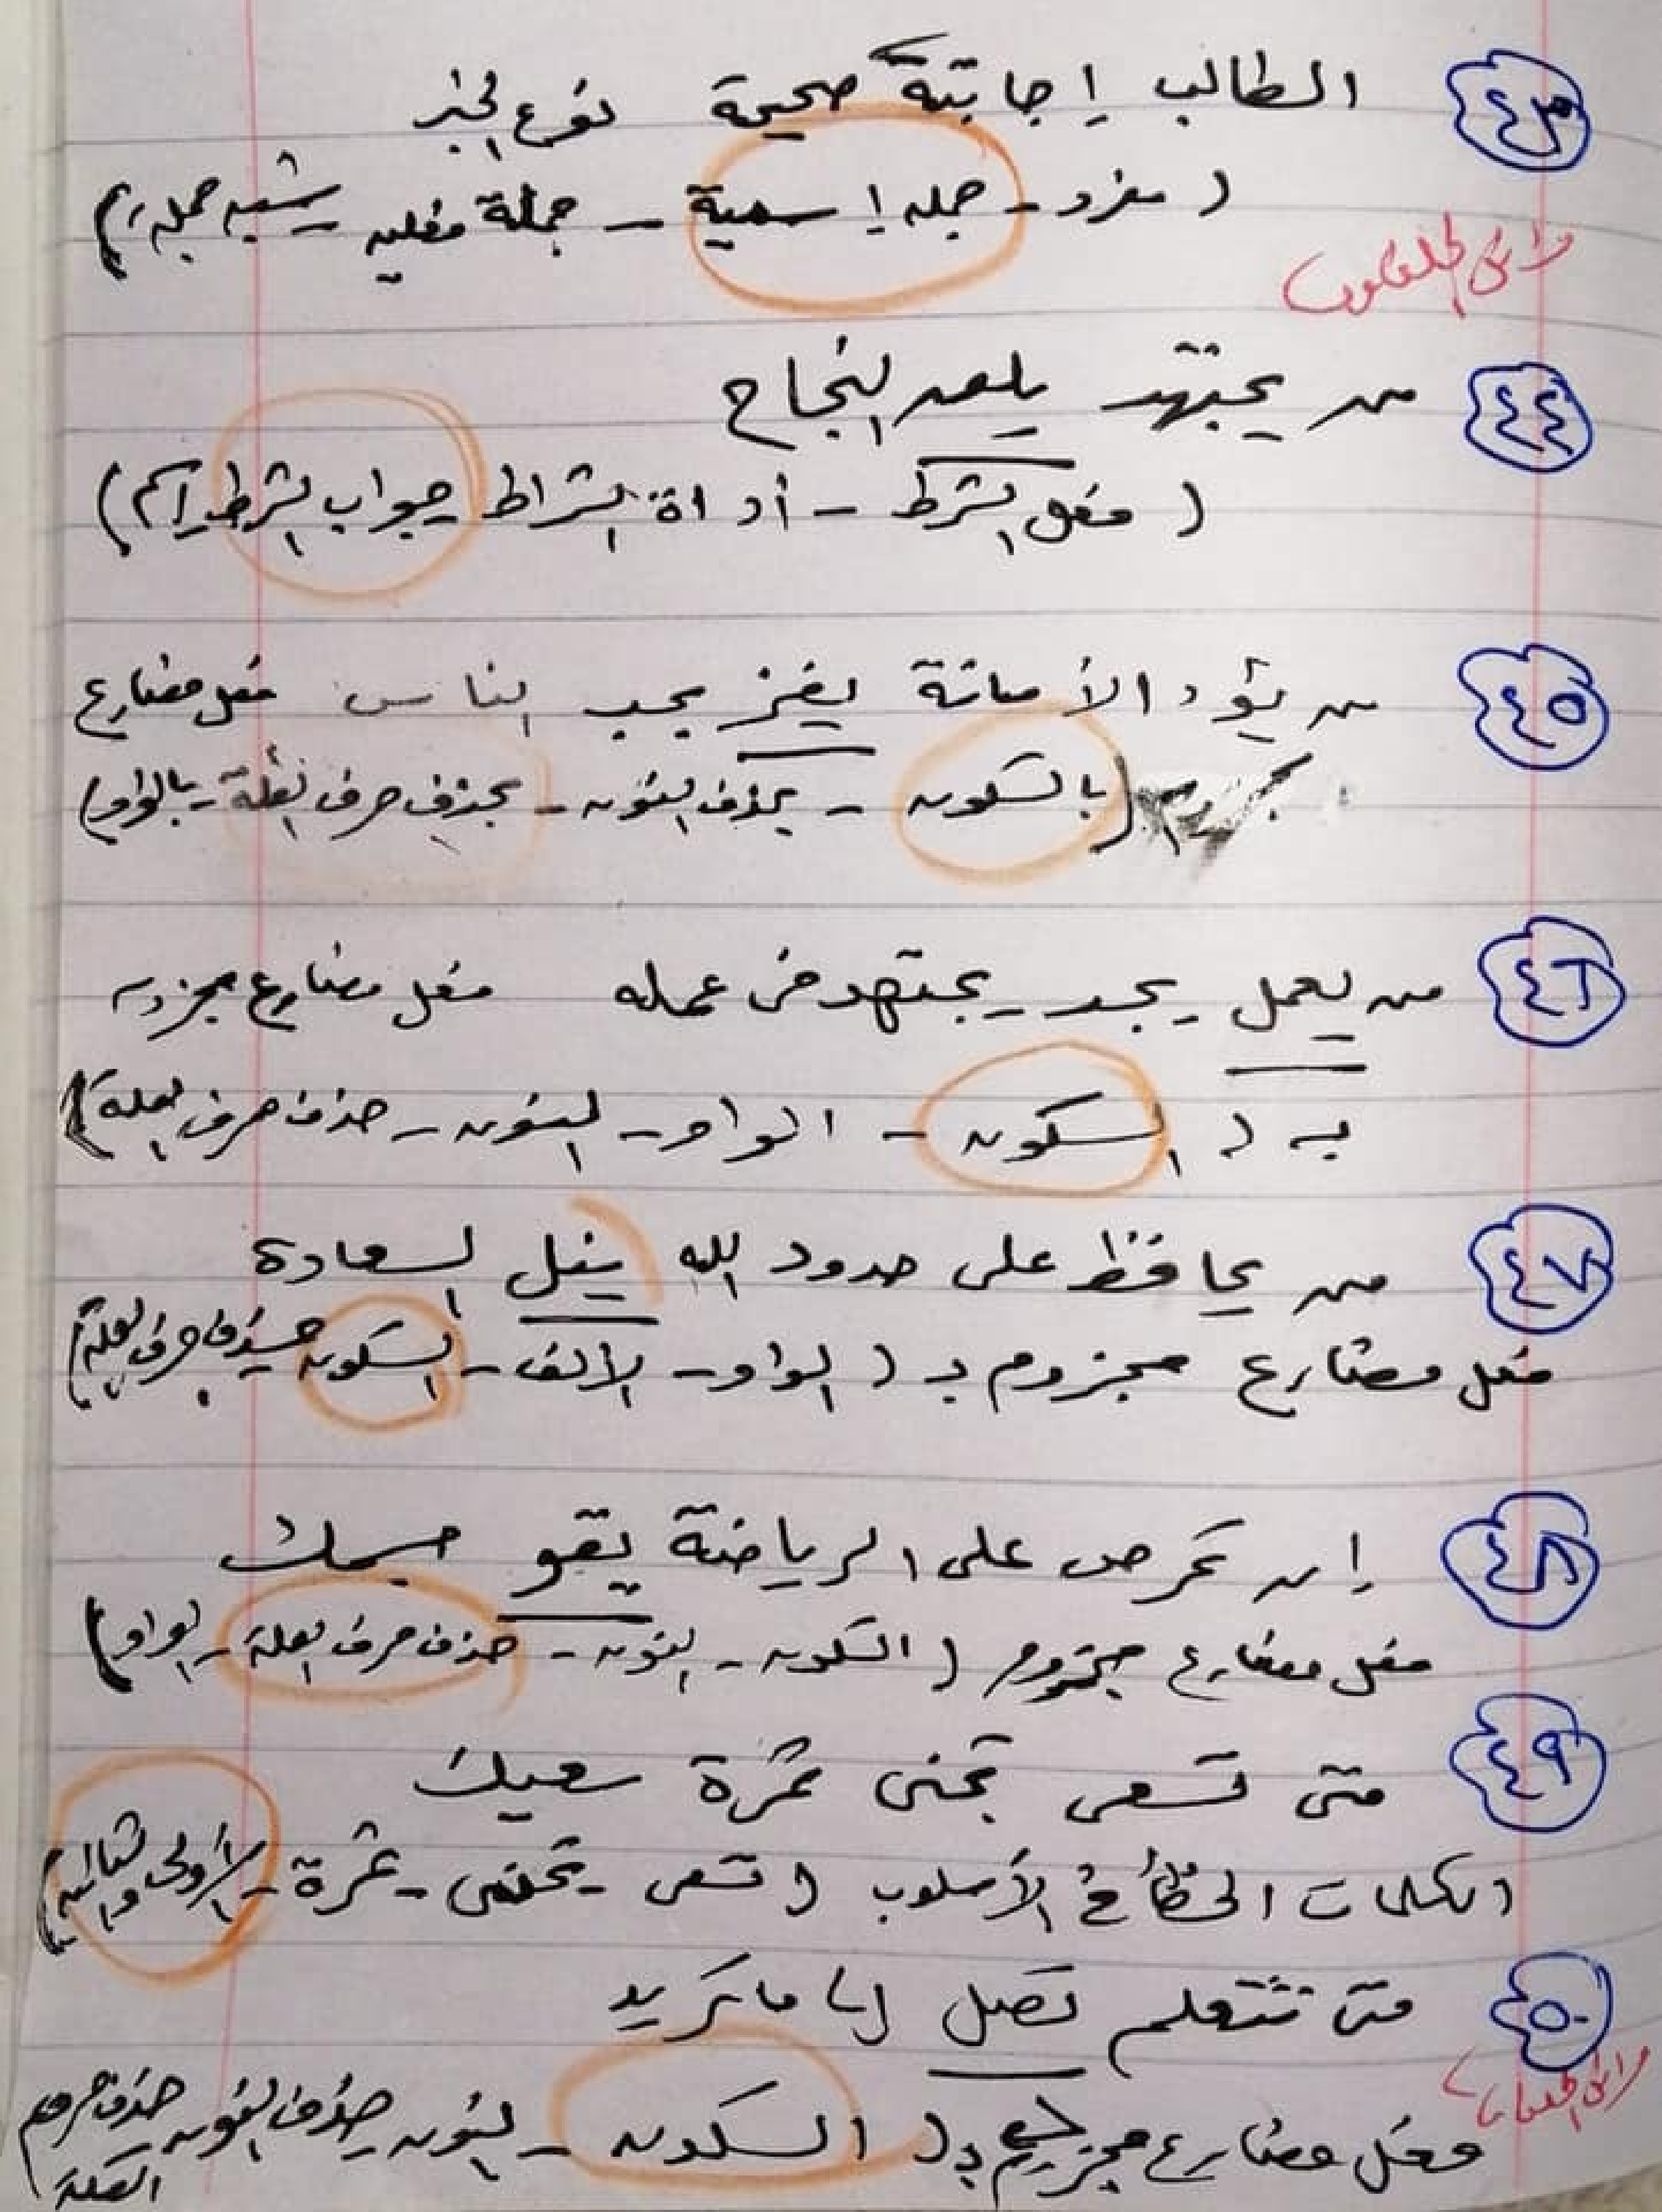 ٤٣ الطالب إجابته صحيحة نوع الخبر
( مفرد - جمله إسمية - جملة فعليه - شبه جمله )
من يجتهد يلق النجاح ٤٤
( فعل الشرط - أداة الشراط - جواب الشرط - اسم )
٤٥ من يؤد الأمانة يفز بحب الناس فعل مضارع
( بالسكون - بحذف النون - بحذف حرف العلة - بالواو )
٤٦ من يعمل بجد يجتهد فى عمله فعل مضارع مجزوم
بـ ( السكون - الواو - النون - حذف حرف العلة )
٤٧ من يحافظ على حدود الله ينل السعادة
فعل مضارع مجزوم بـ ( الواو - الألف - السكون - حذف حرف العلة )
٤٨ إن تحرص على الرياضة يقو جسمك
فعل مضارع مجزوم ( السكون - النون - حذف حرف العلة - الواو )
٤٩ متى تسعى تجنى ثمرة سعيك
الكلمات الخطأ فى الأسلوب ( تسعى - تجنى - ثمرة - الأولى والثانيه )
٥٠ متى تتعلم تصل إلى ما تريد
فعل مضارع مجزوم بـ ( السكون - النون - حذف النون - حذف حرف العلة